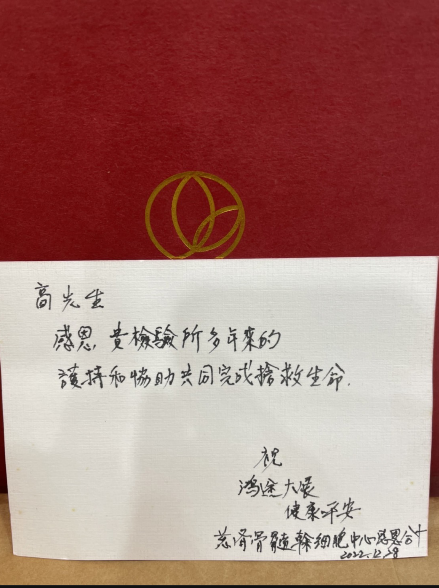 高先生
感恩 貴檢驗所多年來的
護持和協助共同完成搶救生命.
祝
鴻途大展
健康平安
慈濟骨髓幹細胞中心感恩合十
2022.12.28